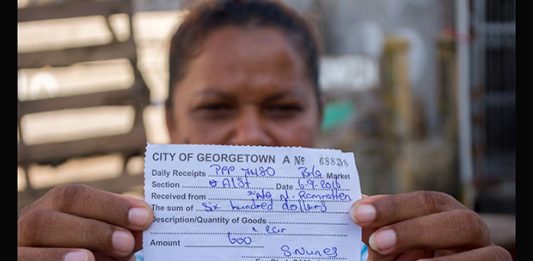 CITY OF GEORGETOWN A No 68828
Daily Receipts PPP 7480 Market
Section Date 6-9-2016
Received from N. Ramrattan
The sum of Six hundred dollars
Description/Quantity of Goods
1 car
Amount 600 S. Nunes